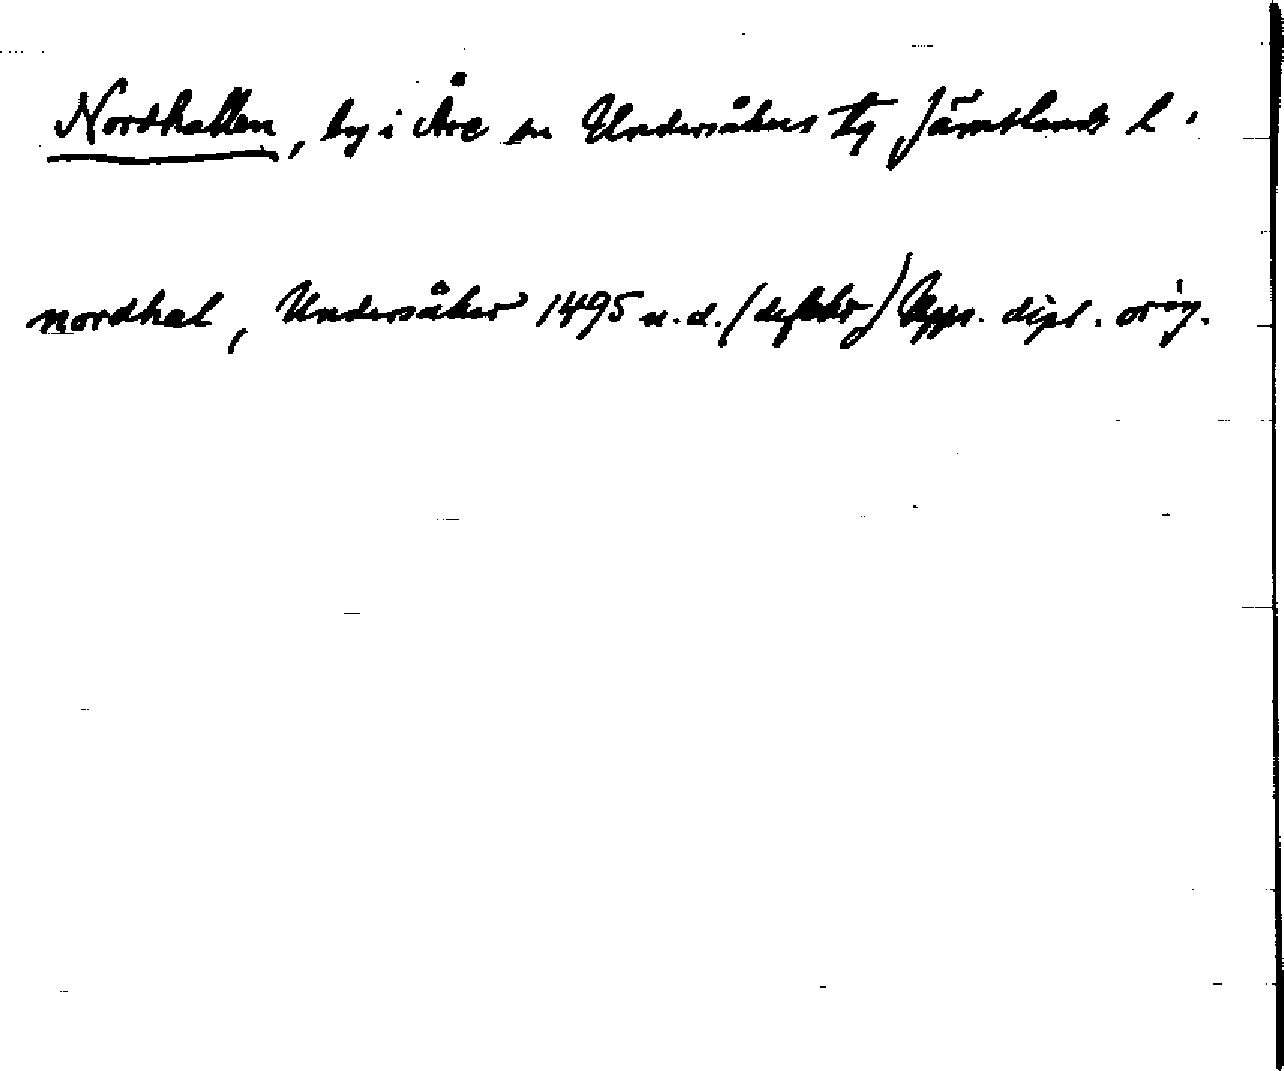 Nordhallen, by i Åre sn Undersåkers tg Jämtlands l.
nordhal, Undersåker 1495 u.d. (defekt) Upps. dipl. orig.